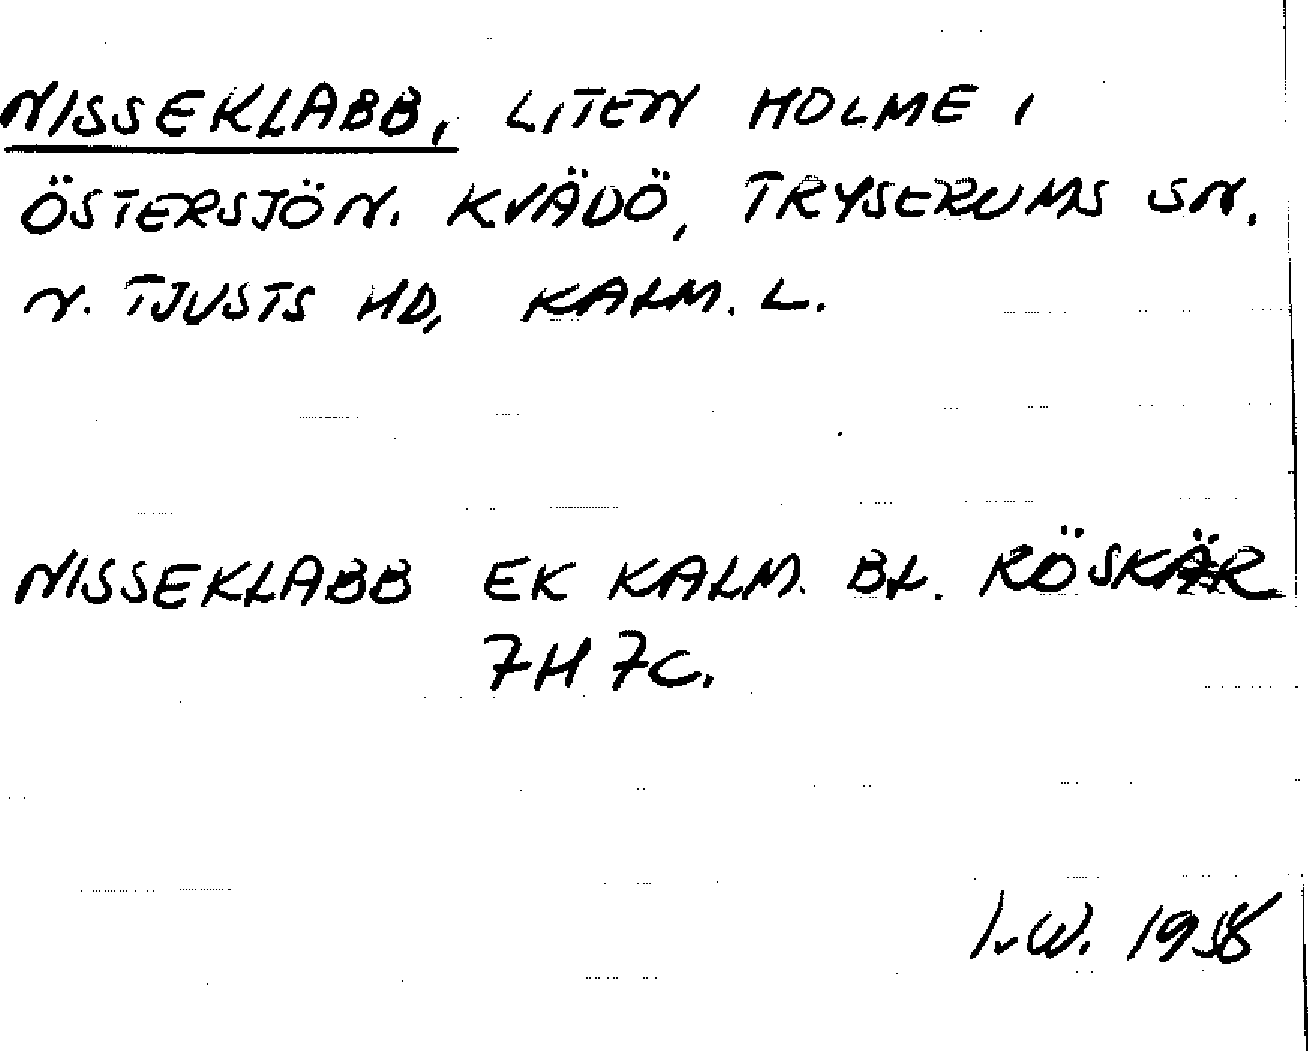 NISSEKLABB, LITEN HOLME I
ÖSTERSJÖN. KVÄDÖ, TRYSERUMS SN.
N. TJUSTS HD, KALM. L.
NISSEKLABB EK KALM. BL. RÖSKÄR
7H 7C.
I.W. 1958